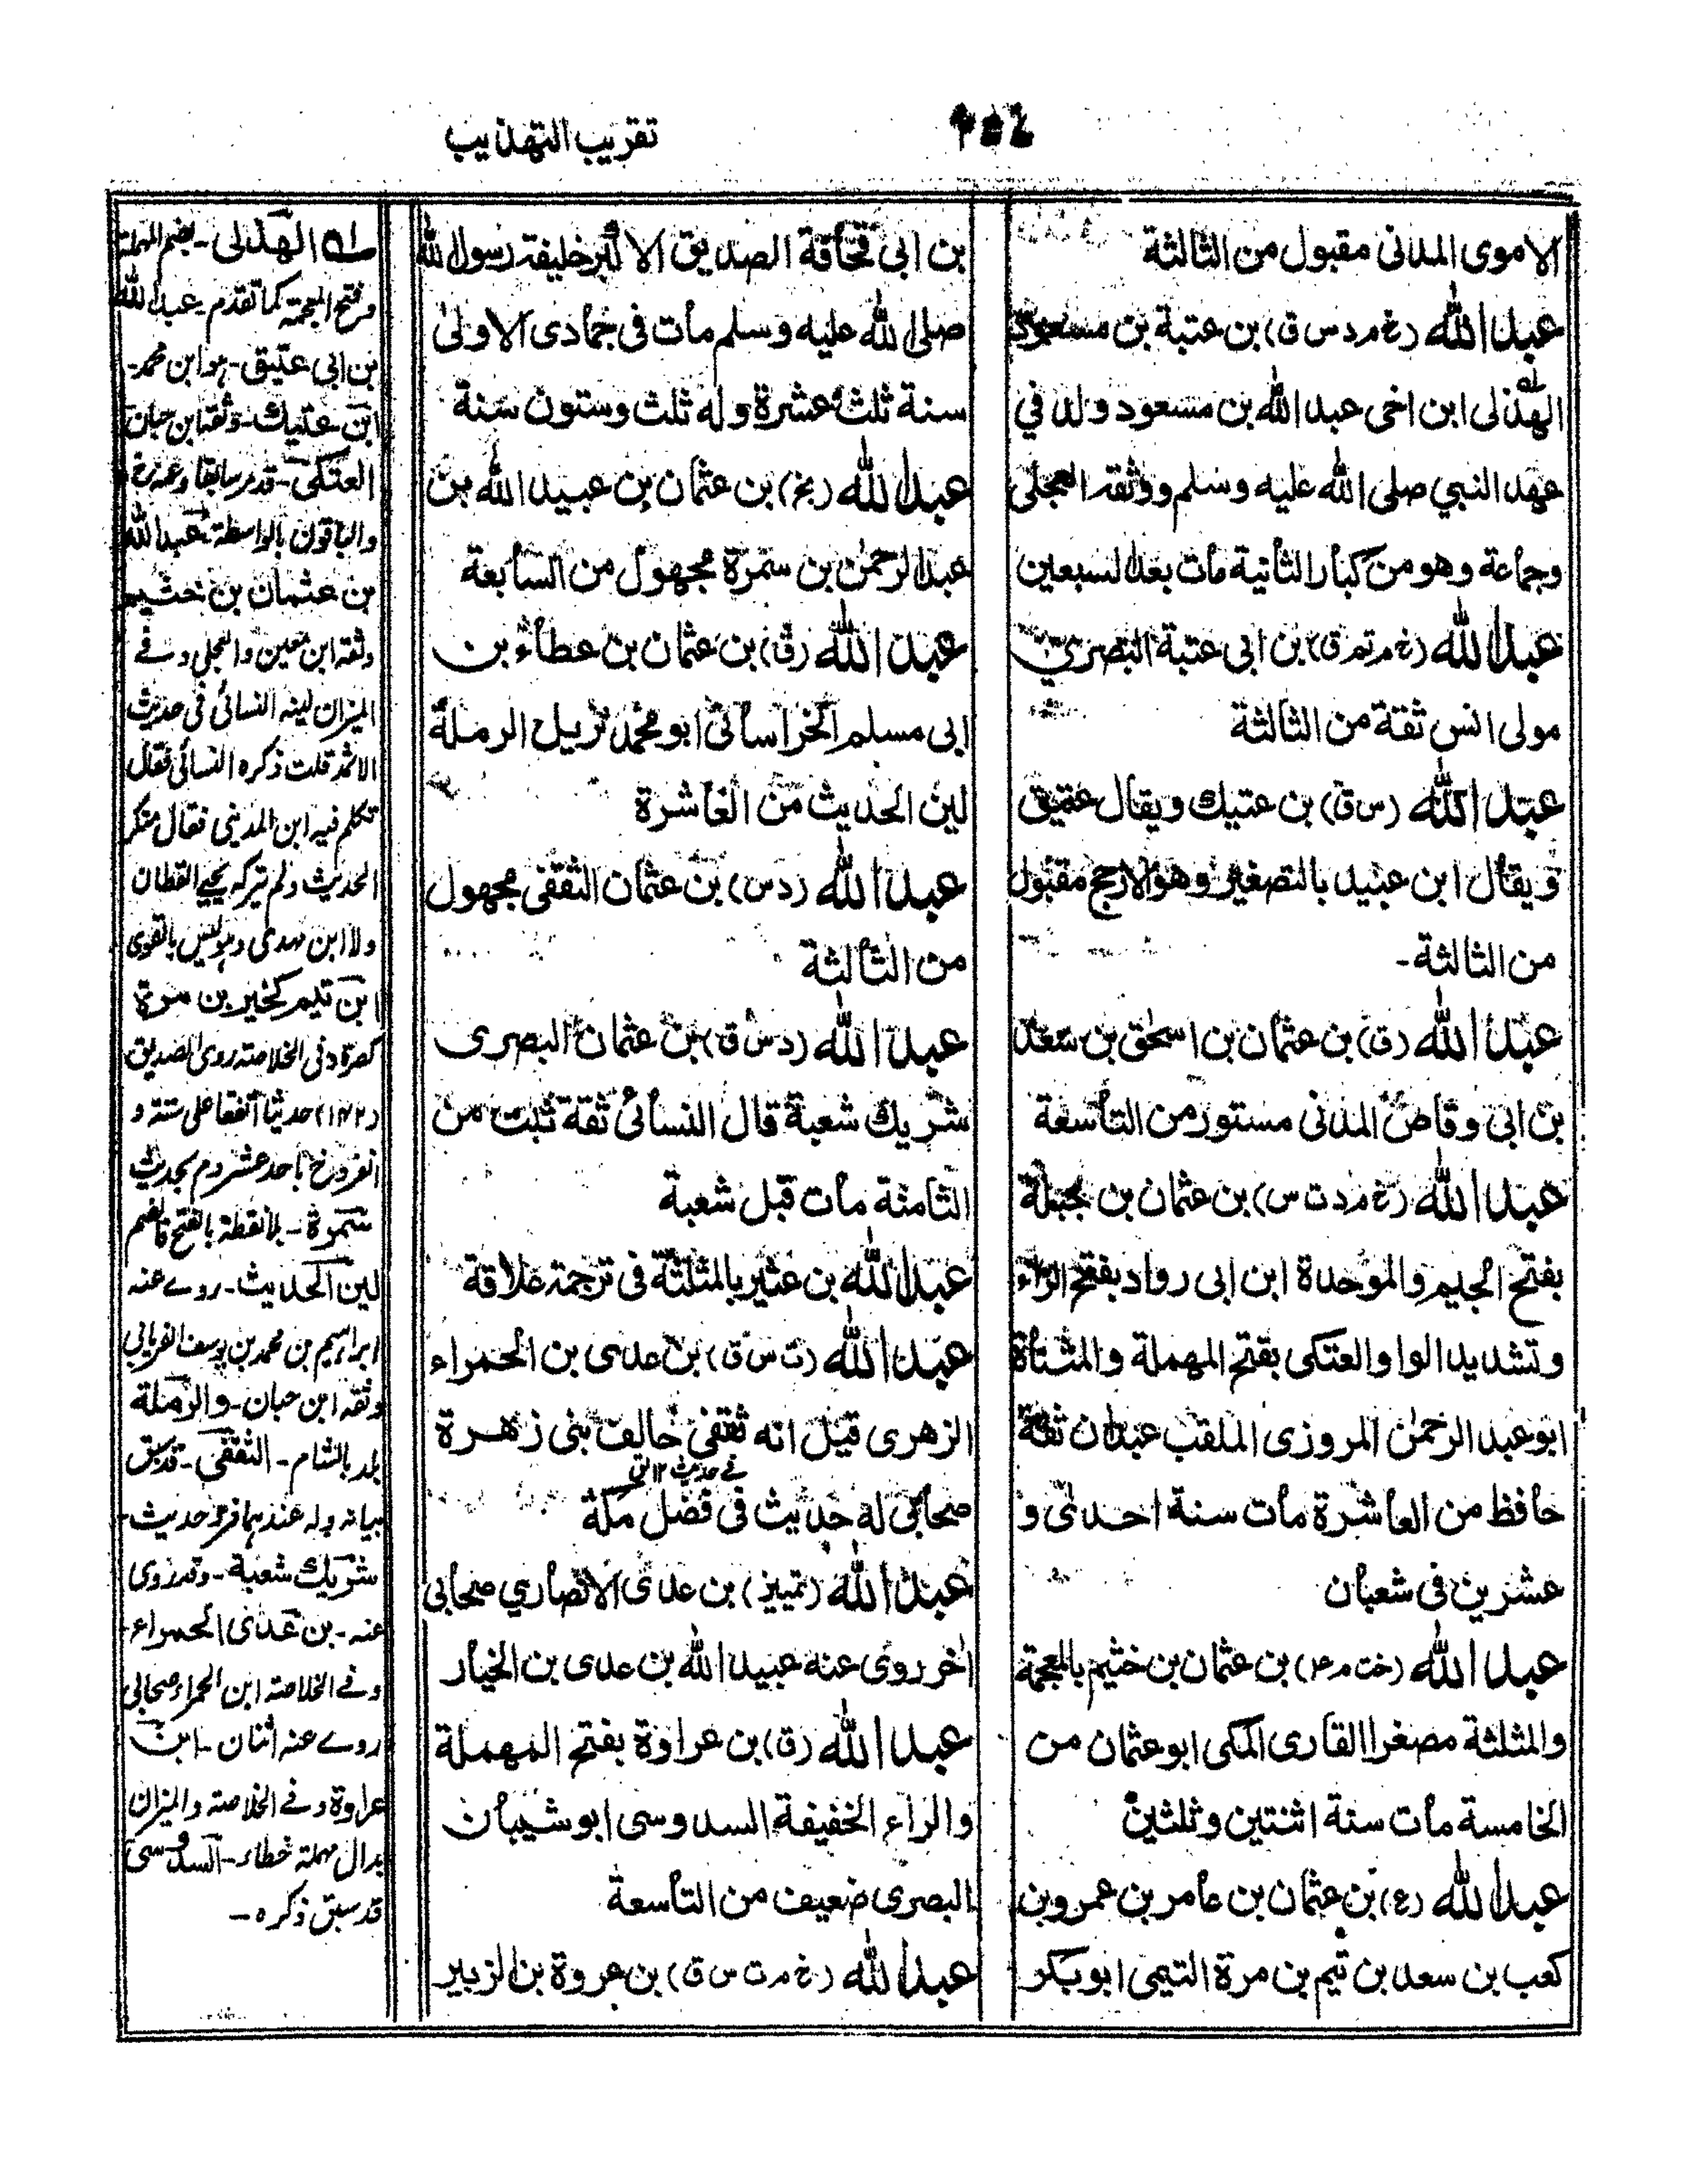 تقريب التهذيب
الاموى المدنى مقبول من الثالثة
عبد الله (خ م د س ق) بن عتبة بن مسعود
الهذلى ابن اخى عبد الله بن مسعود ولد في
عهد النبي صلى الله عليه وسلم ووثقه العجلى
وجماعة وهو من كبار الثانية مات بعد السبعين
عبد الله (خ م تم ق) بن ابى عتبة البصرى
مولى انس ثقة من الثالثة
عبد الله (س ق) بن عتيك ويقال عتيق
ويقال ابن عبيد بالتصغير وهو الارجح مقبول
من الثالثة -
عبد الله (ق) بن عثمان بن اسحق بن سعد
بن ابى وقاص المدنى مستور من التاسعة
عبد الله (خ م د ت س) بن عثمان بن جبلة
بفتح الجيم والموحدة ابن ابى رواد بفتح الراء
وتشديد الواو العتكى بفتح المهملة والمثناة
ابو عبد الرحمن المروزى الملقب عبدان ثقة
حافظ من العاشرة مات سنة احدى و
عشرين فى شعبان
عبد الله (خت م ٤) بن عثمان بن خثيم بالمعجمة
والمثلثة مصغرا القارى المكى ابو عثمان من
الخامسة مات سنة اثنتين وثلثين
عبد الله (ع) بن عثمان بن عامر بن عمرو بن
كعب بن سعد بن تيم بن مرة التيمى ابو بكر
بن ابى قحافة الصديق الاكبر خليفة رسول الله
صلى الله عليه وسلم مات فى جمادى الاولى
سنة ثلث عشرة وله ثلث وستون سنة
عبد الله (بخ) بن عثمان بن عبيد الله بن
عبد الرحمن بن سمرة مجهول من السابعة
عبد الله (ق) بن عثمان بن عطاء بن
ابى مسلم الخراسانى ابو محمد نزيل الرملة
لين الحديث من العاشرة
عبد الله (د س) بن عثمان الثقفى مجهول
من الثالثة
عبد الله (د س ق) بن عثمان البصرى
شريك شعبة قال النسائى ثقة ثبت من
الثامنة مات قبل شعبة
عبد الله بن عثير بالمثلثة فى ترجمة علاقة
عبد الله (ت س ق) بن عدى بن الحمراء
الزهرى قيل انه ثقفى حالف بنى زهرة
صحابى له حديث فى فضل مكة
عبد الله (تمييز) بن عدى الانصاري صحابى
اخر روى عنه عبيد الله بن عدى بن الخيار
عبد الله (ق) بن عراوة بفتح المهملة
والراء الخفيفة السدوسى ابو شيبان
البصرى ضعيف من التاسعة
عبد الله (خ م ت س ق) بن عروة بن الزبير
له الهذلى - بضم المهملة
وفتح المعجمة كما تقدم - عبد الله
بن ابى عتيق - هو ابن محمد -
ابن عتيك - وثقه ابن حبان
العتكى - قدم سابقا وعنه خ
والباقون بالواسطة - عبد الله
بن عثمان بن خثيم
وثقه ابن معين والعجلى وفے
الميزان لينه النسائى فى حديث
الاثمد قلت ذكره النسائى فقال
تكلم فيه ابن المدينى فقال منكر
الحديث ولم يتركه يحيى القطان
ولا ابن مهدى وهو ليس بالقوى
ابن تيم كخير بن مرة
كصرة وفى الخلاصة روى الصديق
(١٤٢) حديثا اتفقا على ستة و
انفرد خ باحد عشر وم بحديث
سمرة - بلا نقطة بالفتح فالضم
لين الحديث - روے عنه
ابراهيم بن محمد بن يوسف الفريابى
وثقه ابن حبان - والرملة
بلد بالشام - الثقفى - قد سبق
بيانه وله عندهما فرد حديث -
شريك شعبة - وقد روى
عنه - بن عدى الحمراء -
وفے الخلاصة ابن الحمراء صحابى
روے عنه اثنان - ابن
عراوة وفے الخلاصة والميزان
بدال مهملة خطاء - السدوسى
قد سبق ذكره -